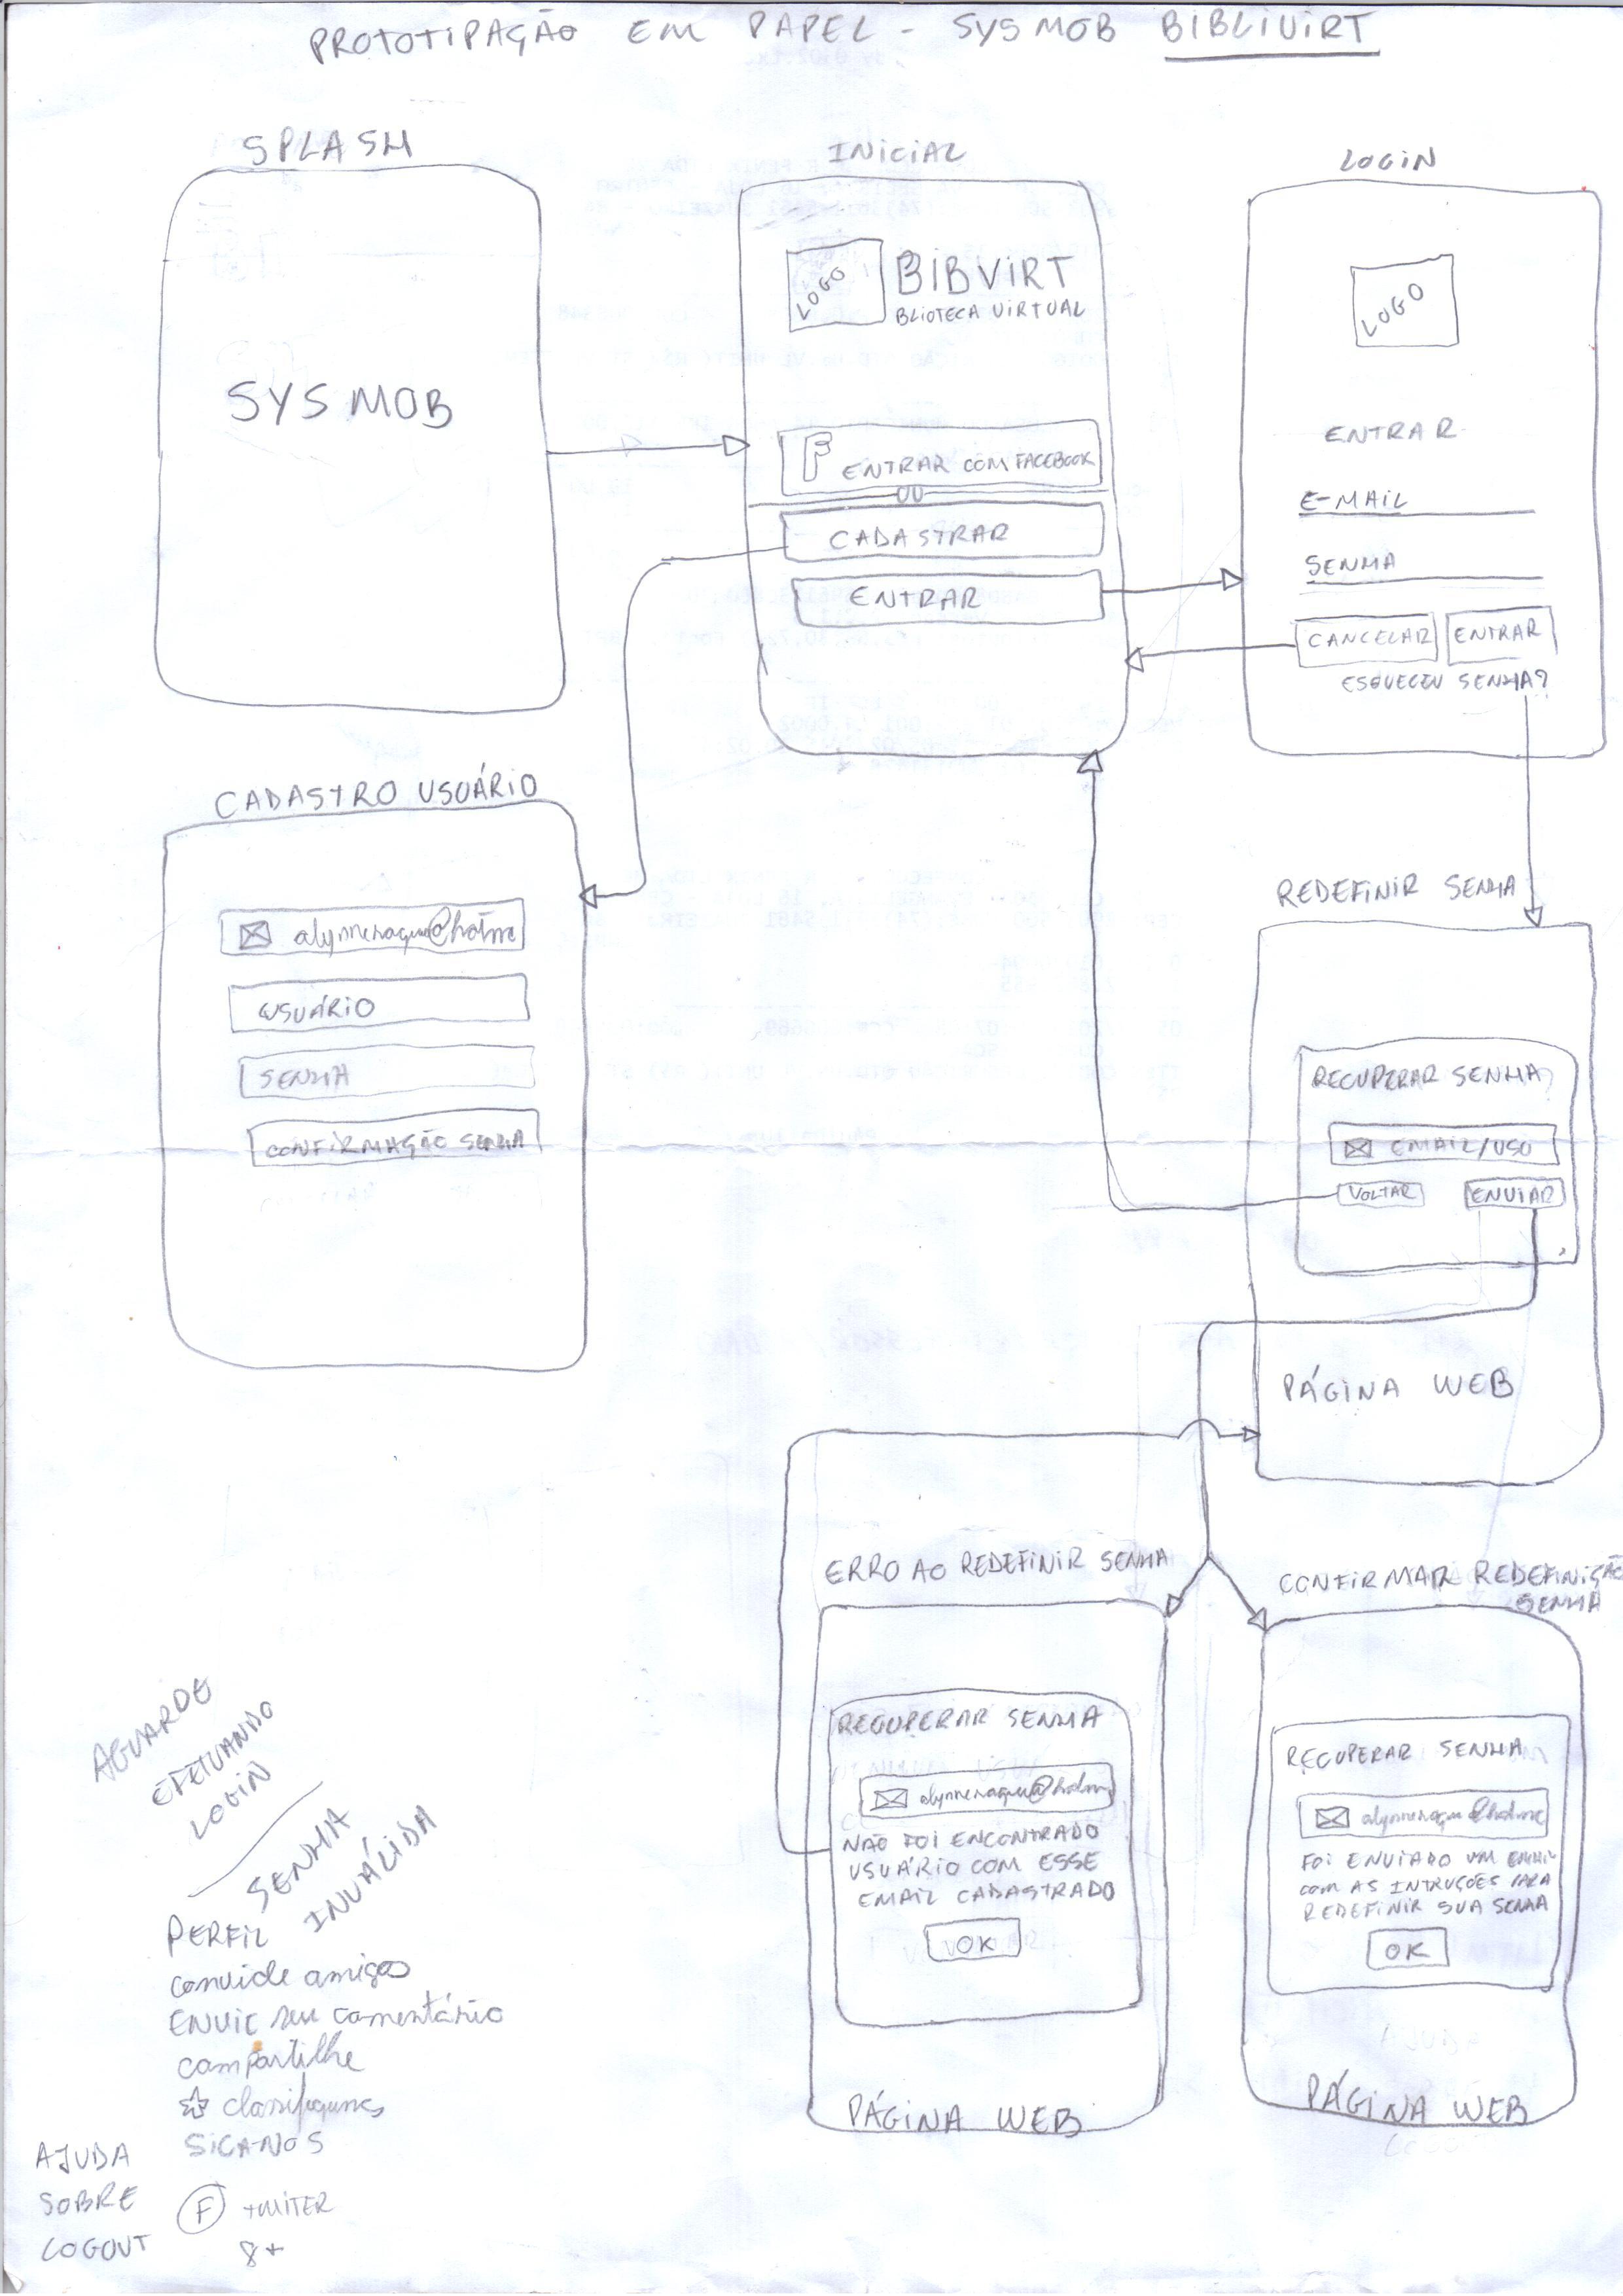 PROTOTIPAÇÃO EM PAPEL - SYSMOB BIBLIVIRT
SPLASH
SYSMOB
INICIAL
LOGO
BIBVIRT
BLIOTECA VIRTUAL
F ENTRAR COM FACEBOOK
OU
CADASTRAR
ENTRAR
LOGIN
LOGO
ENTRAR
E-MAIL
SENHA
CANCELAR ENTRAR
ESQUECEU SENHA?
CADASTRO USUÁRIO
USUÁRIO
SENHA
CONFIRMAÇÃO SENHA
REDEFINIR SENHA
RECUPERAR SENHA?
EMAIL/USO
VOLTAR ENVIAR
PÁGINA WEB
ERRO AO REDEFINIR SENHA
RECUPERAR SENHA
NÃO FOI ENCONTRADO
USUÁRIO COM ESSE
EMAIL CADASTRADO
OK
PÁGINA WEB
CONFIRMAR REDEFINIÇÃO
SENHA
RECUPERAR SENHA
FOI ENVIADO UM EMAIL
COM AS INTRUÇÕES PARA
REDEFINIR SUA SENHA
OK
PÁGINA WEB
AGUARDE
EFETUANDO
LOGIN
SENHA
INVÁLIDA
PERFIL
convide amigos
ENVIE seu comentário
compartilhe
SIGA-NOS
F +WITER
8+
AJUDA
SOBRE
LOGOUT